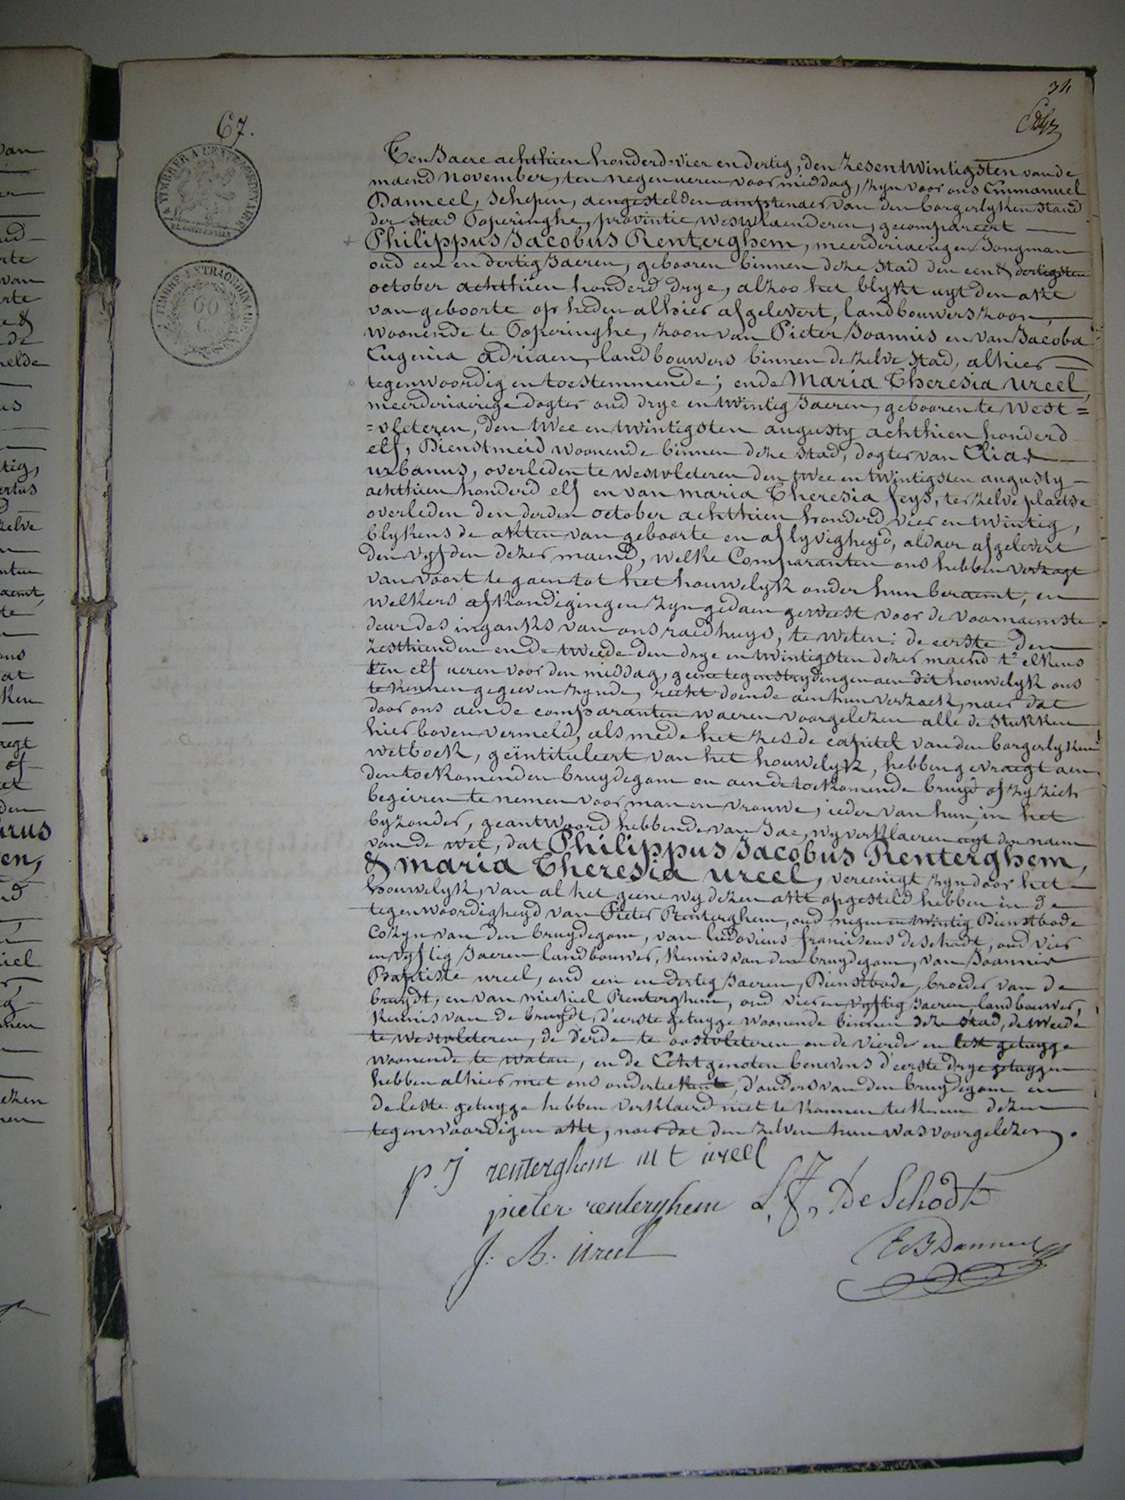 34
67.
TIMBRE EXTRAORDINAIRE
60
C
Ten Jaere achthien honderd vier en dertig, den zesentwintigsten van de
maend November, ten negen ueren voormiddag, zyn voor ons Emmanuel
Danneel, schepen, aengestelden amptenaer van den borgerlyken stand
der stad Poperinghe, provintie westvlaenderen, gecompareert
Philippus Jacobus Renterghem, meerderiaerigen Jongman
oud een en dertig Jaeren, gebooren binnen deze stad den een & dertigsten
october achthien honderd drye, alzoo het blykt uyt den akt
van geboorte op heden alhier afgelevert, landbouwerszoon,
woonende te Poperinghe, zoon van Pieter Joannis en van Jacoba
Eugenia Adriaen, landbouwers binnen de zelve stad, alhier
tegenwoordig en toestemmende; ende Maria Theresia Ureel,
meerderiaerige dogter oud drye en twintig Jaeren, gebooren te West=
=vleteren, den twee en twintigsten augusty achthien honderd
elf, Dienstmeid woonende binnen deze stad, dogter van Elias
urbanus, overleden te westvleteren den twee en twintigsten augusty
achthien honderd elf en van maria Theresia feys, ter zelve plaetse
overleden den derden october achthien honderd vier en twintig,
blykens de akten van geboorte en aflyvigheyd, aldaer afgelevert
den vyfden dezer maend, welke Comparanten ons hebben verzogt
van voort te gaen tot het houwelyk onder hun beraemt, en
welkers afkondigingen zyn gedaen geweest voor de voornaemste
deur des ingangs van ons raedhuys, te weten: de eerste den
zesthienden en de tweede den drye en twintigsten dezer maend t'elkens
ten elf ueren voor den middag, geene tegenstrydingen aen dit houwelyk ons
te kennen gegeven zynde, recht doende aen hun verzoek, naer dat
door ons aen de comparanten waeren voorgelezen alle de stukken
hier boven vermeld, als mede het zesde capitel van den borgerlyken
wetboek, geintituleert van het houwelyk, hebben gevraegt aen
den toekomenden bruydegom en aen de toekomende bruyd of zy zich
begeiren te nemen voor man en vrouwe, ieder van hun, in het
byzonder, geantwoord hebbende van Jae, wy verklaeren uyt den naem
van de wet, dat Philippus Jacobus Renterghem,
& Maria Theresia Ureel, vereenigt zyn door het
houwelyk, van al het geene wy dezen akt opgesteld hebben in de
tegenwoordigheyd van Pieter Renterghem, oud negen en twintig Dienstbode
Cozyn van den bruydegom, van ludovicus franciscus de schodt, oud vier
en vyftig Jaeren landbouwer, kennis van den bruydegom, van Joannes
Baptiste ureel, oud een en dertig Jaeren, Dienstbode, broeder van de
bruydt, en van michiel Renterghem, oud vier en vyftig Jaeren, landbouwer,
kennis van de bruydt, d'eerste getuyge woonende binnen deze stad, de tweede
te westvleteren, de derde te oostvleteren en de vierde en lest getuyge
woonende te watou, en de Echtgenoten benevens d'eerste drye getuygen
hebben alhier met ons onderteekent, d'ouders van den bruydegom en
de leste getuyge hebben verklaerd niet te konnen teekenen dezen
tegenwoordigen akt, naer dat den zelven hun was voorgelezen.
p. J renterghem m t ureel
pieter renterghem L. F. De Schodt
J. B. Ureel
E B Danneel